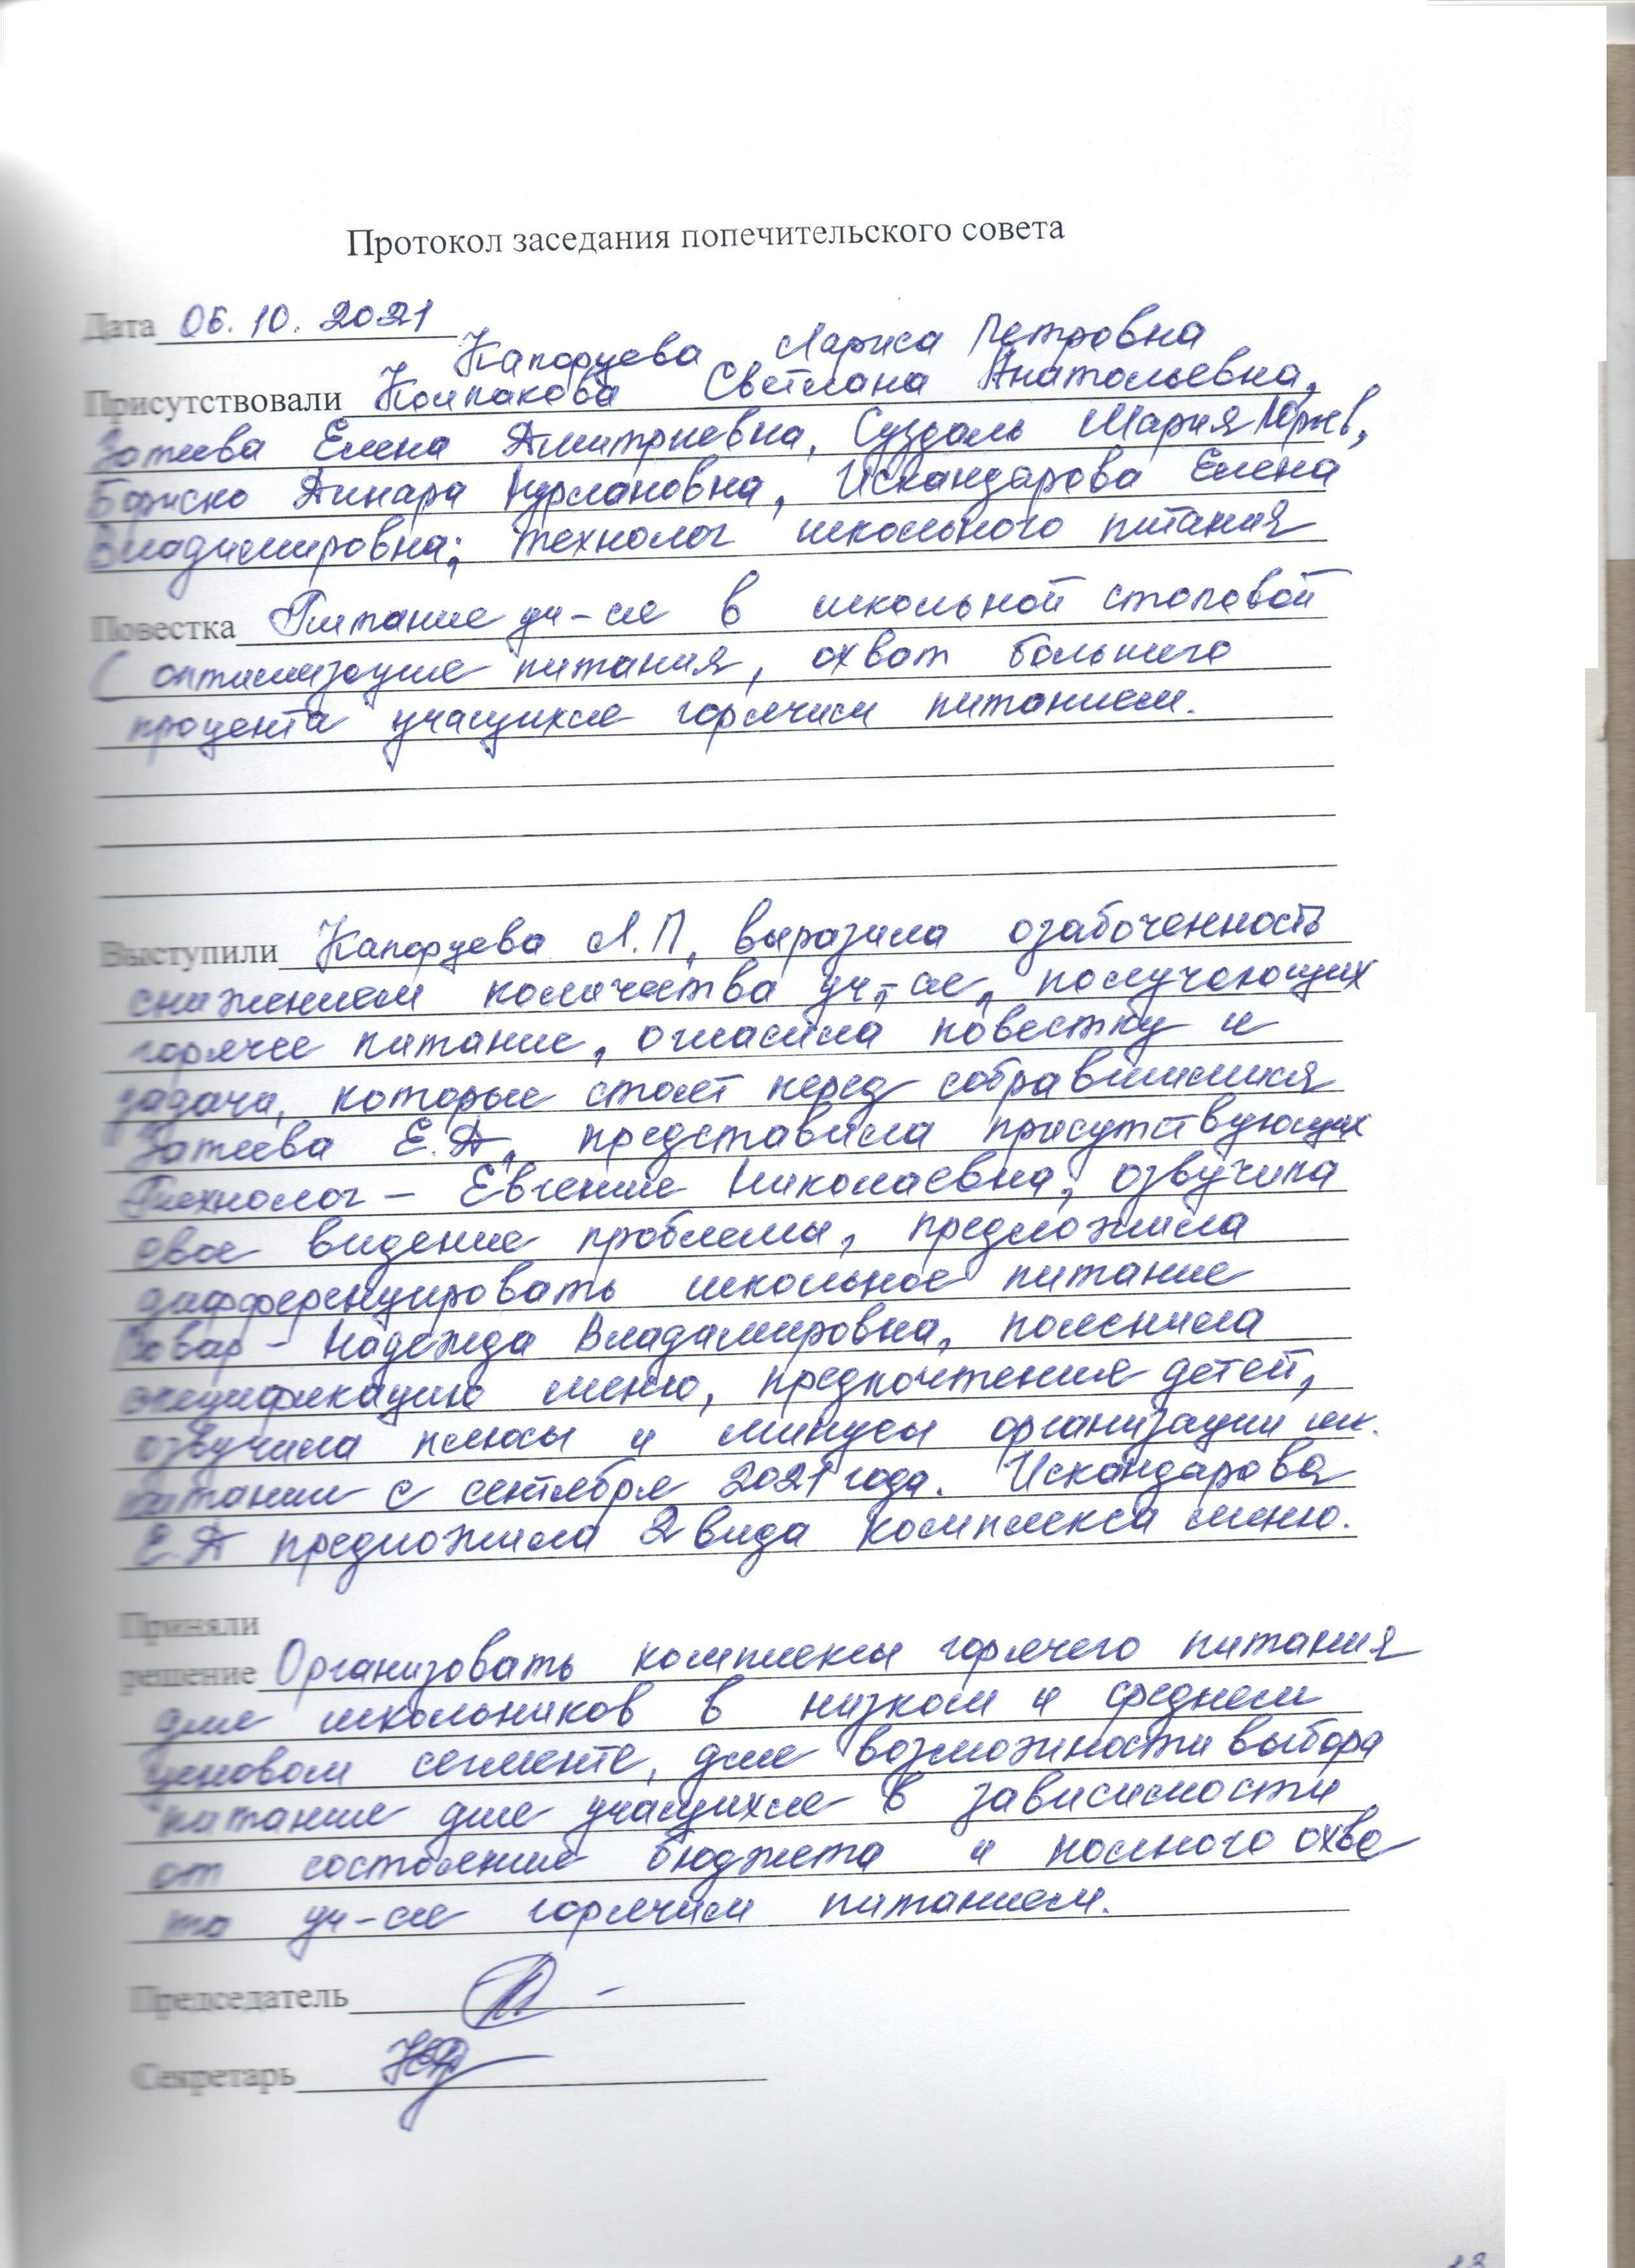 Протокол заседания попечительского совета
Дата 06.10.2021
Капорцева Лариса Петровна
Присутствовали Колпакова Светлана Анатольевна,
Затеева Елена Дмитриевна, Суздаль Мария Юрьев,
Динара Нурлановна, Искандарова Елена
Владимировна; технолог школьного питания
Повестка Питание уч-ся в школьной столовой
( оптимизация питания, охват большего
процента учащихся горячим питанием.
Выступили Капорцева Л.П. выразила озабоченность
снижением количества уч-ся, получающих
горячее питание, огласила повестку и
задачи, которые стоят перед собравшимися
Затеева Е.Д. представила присутствующих
Технолог - Евгения Николаевна, озвучила
свое видение проблемы, предложила
дифференцировать школьное питание
Повар - Надежда Владимировна, пояснила
спецификацию меню, предпочтения детей,
озвучила плюсы и минусы организации шк.
питания с сентября 2021 года. Искандарова
Е.Д предложила 2 вида комплекса меню.
Приняли
решение Организовать комплексы горячего питания
для школьников в низком и среднем
ценовом сегменте, для возможности выбора
питания для учащихся в зависимости
от состояния бюджета и полного охва
та уч-ся горячим питанием.
Председатель
Секретарь